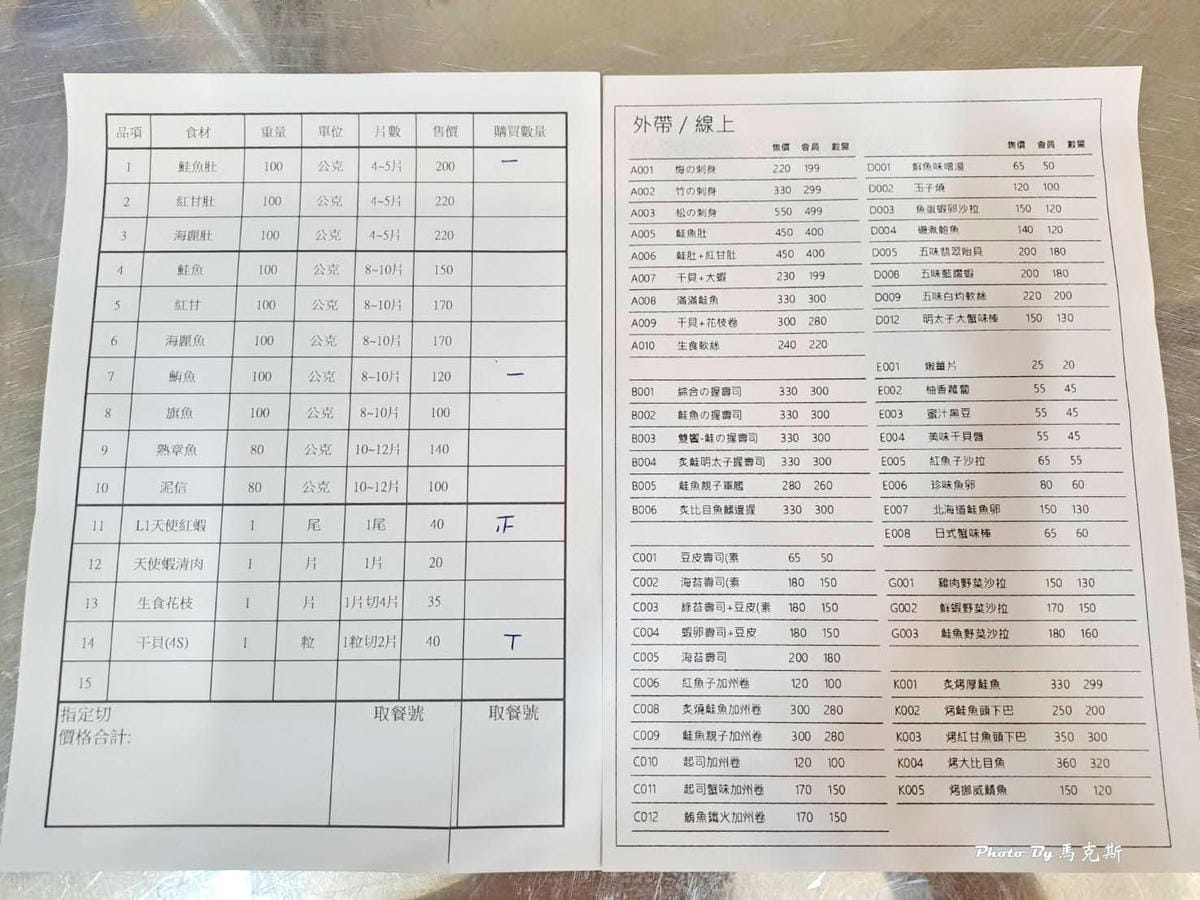 品項 食材 重量 單位 片數 售價 購買數量
1 鮭魚肚 100 公克 4~5片 200 一
2 紅甘肚 100 公克 4~5片 220
3 海麗肚 100 公克 4~5片 220
4 鮭魚 100 公克 8~10片 150
5 紅甘 100 公克 8~10片 170
6 海麗魚 100 公克 8~10片 170
7 鮪魚 100 公克 8~10片 120 一
8 旗魚 100 公克 8~10片 100
9 熟章魚 80 公克 10~12片 140
10 泥信 80 公克 10~12片 100
11 L1天使紅蝦 1 尾 1尾 40 正
12 天使蝦清肉 1 片 1片 20
13 生食花枝 1 片 1片切4片 35
14 干貝(4S) 1 粒 1粒切2片 40 丅
15
指定切 取餐號 取餐號
價格合計:
外帶 / 線上
售價 會員 數量
A001 梅の刺身 220 199
A002 竹の刺身 330 299
A003 松の刺身 550 499
A005 鮭魚肚 450 400
A006 鮭肚+紅甘肚 450 400
A007 干貝+大蝦 230 199
A008 滿滿鮭魚 330 300
A009 干貝+花枝卷 300 280
A010 生食軟絲 240 220
B001 綜合の握壽司 330 300
B002 鮭魚の握壽司 330 300
B003 雙響-鮭の握壽司 330 300
B004 炙鮭明太子握壽司 330 300
B005 鮭魚親子軍艦 280 260
B006 炙比目魚鰭邊握 330 300
C001 豆皮壽司(素 65 50
C002 海苔壽司(素 180 150
C003 綠苔壽司+豆皮(素 180 150
C004 蝦卵壽司+豆皮 180 150
C005 海苔壽司 200 180
C006 紅魚子加州卷 120 100
C008 炙燒鮭魚加州卷 300 280
C009 鮭魚親子加州卷 300 280
C010 起司加州卷 120 100
C011 起司蟹味加州卷 170 150
C012 鮪魚鐵火加州卷 170 150
售價 會員 數量
D001 鮮魚味噌湯 65 50
D002 玉子燒 120 100
D003 魚蛋蝦卵沙拉 150 120
D004 磯煮鮑魚 140 120
D005 五味翡翠貽貝 200 180
D008 五味藍鑽蝦 200 180
D009 五味白灼軟絲 220 200
D012 明太子大蟹味棒 150 130
E001 嫩薑片 25 20
E002 柚香蘿蔔 55 45
E003 蜜汁黑豆 55 45
E004 美味干貝唇 55 45
E005 紅魚子沙拉 65 55
E006 珍味魚卵 80 60
E007 北海道鮭魚卵 150 130
E008 日式蟹味棒 65 60
G001 雞肉野菜沙拉 150 130
G002 鮮蝦野菜沙拉 170 150
G003 鮭魚野菜沙拉 180 160
K001 炙烤厚鮭魚 330 299
K002 烤鮭魚頭下巴 250 200
K003 烤紅甘魚頭下巴 350 300
K004 烤大比目魚 360 320
K005 烤挪威鯖魚 150 120
Photo By 馬克斯